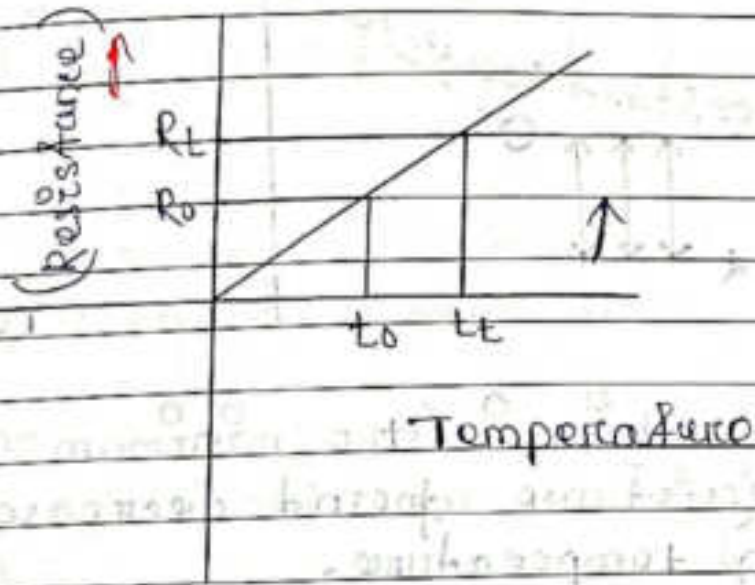 (Resistance)
Rt
R0
t0 tt
Temperature